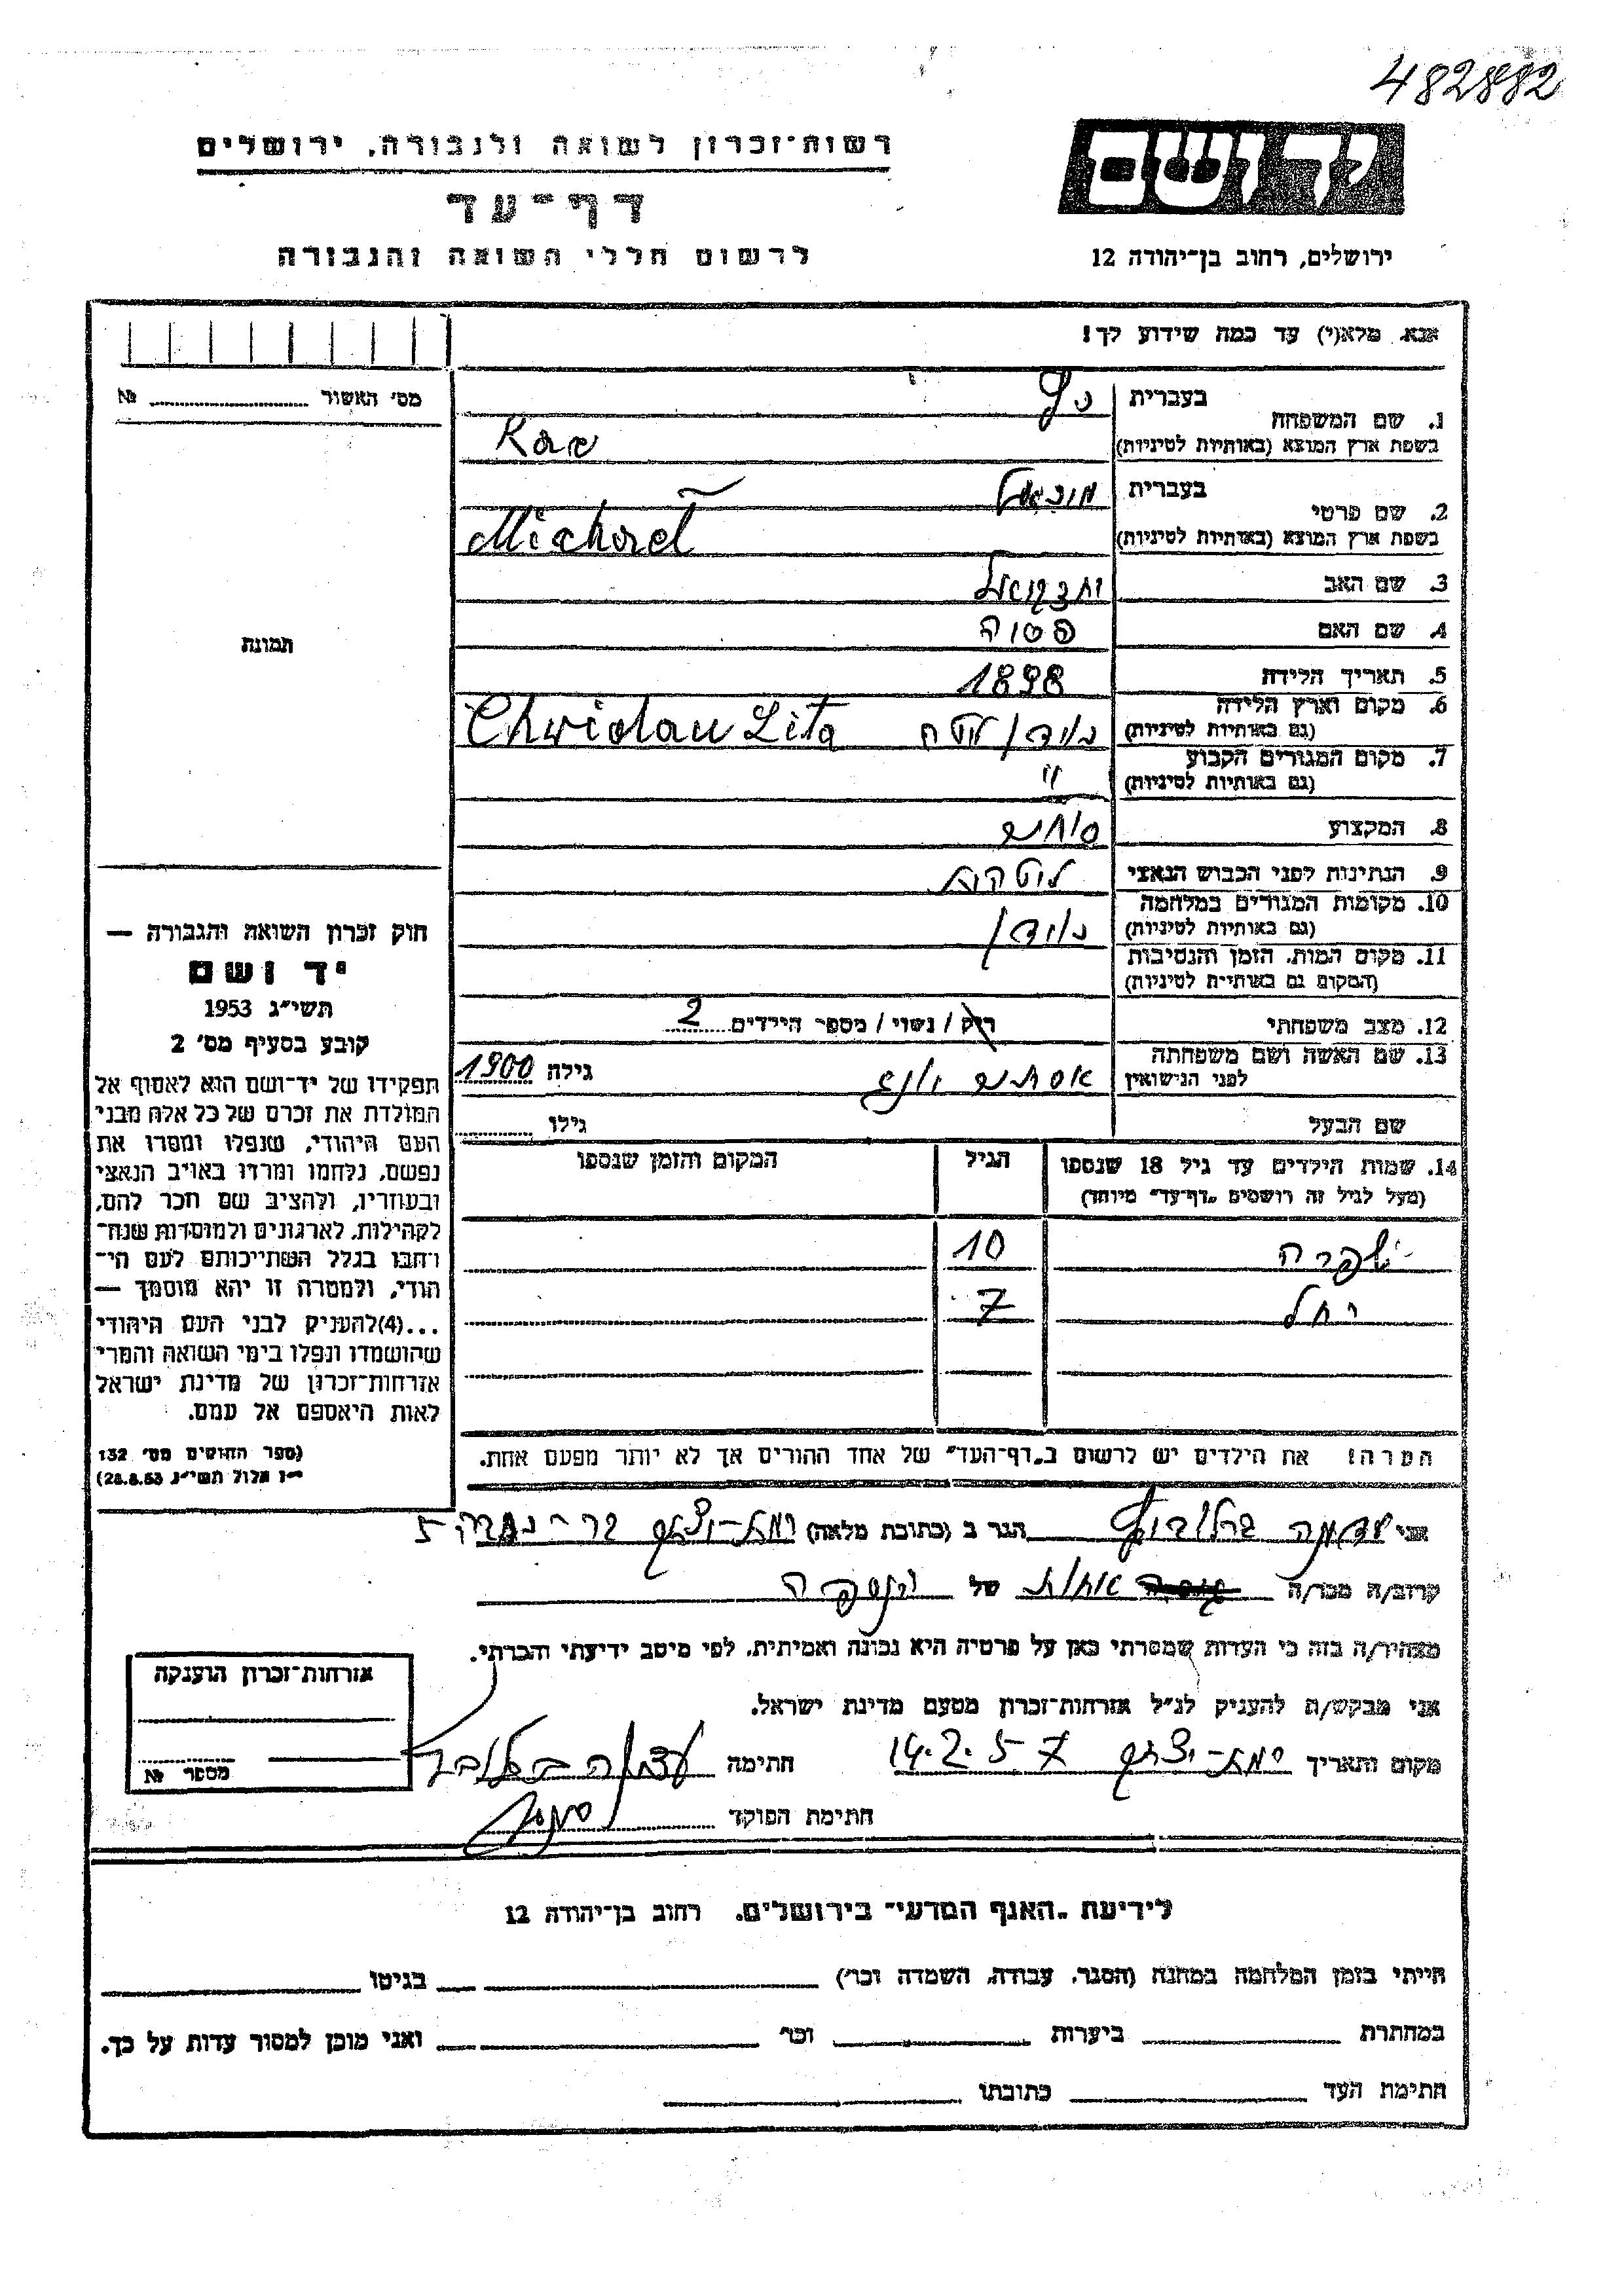 482882
יד ושם
רשות־זכרון לשואה ולגבורה, ירושלים
דף־עד
ירושלים, רחוב בן־יהודה 12
לרשום חללי השואה והגבורה
אנא, מלא(י) עד כמה שידוע לך!
מס׳ האשור №
1. שם המשפחה
בעברית
בשפת ארץ המוצא (באותיות לטיניות)
2. שם פרטי
בעברית
בשפת ארץ המוצא (באותיות לטיניות) Michael
3. שם האב
4. שם האם
5. תאריך הלידה 1898
6. מקום וארץ הלידה
(גם באותיות לטיניות) Chwidan Lita
7. מקום המגורים הקבוע "
(גם באותיות לטיניות)
8. המקצוע סוחר
9. הנתינות לפני הכבוש הנאצי
10. מקומות המגורים במלחמה
(גם באותיות לטיניות)
11. מקום המות, הזמן והנסיבות
(המקום גם באותיות לטיניות)
12. מצב משפחתי רוק / נשוי / מספר הילדים 2
13. שם האשה ושם משפחתה
לפני הנישואין אסתר גילה 1900
שם הבעל גילו
14. שמות הילדים עד גיל 18 שנספו הגיל המקום והזמן שנספו
(מעל לגיל זה רושמים „דף־עד" מיוחד)
שפרה 10
רחל 7
הערה! את הילדים יש לרשום ב„דף־העד" של אחד ההורים אך לא יותר מפעם אחת.
תמונת
חוק זכרון השואה והגבורה —
יד ושם
תשי״ג 1953
קובע בסעיף מס׳ 2
תפקידו של יד־ושם הוא לאסוף אל
המולדת את זכרם של כל אלה מבני
העם היהודי, שנפלו ומסרו את
נפשם, נלחמו ומרדו באויב הנאצי
ובעוזריו, ולהציב שם וזכר להם,
לקהילות, לארגונים ולמוסדות שנח־
רבו בגלל השתייכותם לעם הי־
הודי, ולמטרה זו יהא מוסמך —
...(4)להעניק לבני העם היהודי
שהושמדו ונפלו בימי השואה והמרי
אזרחות־זכרון של מדינת ישראל
לאות היאספם אל עמם.
(ספר החוקים מס׳ 132
י״ז אלול תשי״ג 28.8.53)
אני הגר ב (כתובת מלאה)
קרוב/ה מכר/ה של
מצהיר/ה בזה כי העדות שמסרתי כאן על פרטיה היא נכונה ואמיתית, לפי מיטב ידיעתי והכרתי.
אני מבקש/ת להעניק לנ״ל אזרחות־זכרון מטעם מדינת ישראל.
מקום ותאריך 14.2.57 חתימה
חתימת הפוקד
אזרחות־זכרון הוענקה
מספר №
לידיעת „האגף המדעי" בירושלים, רחוב בן־יהודה 12
הייתי בזמן המלחמה במחנה (הסגר, עבודה, השמדה וכר׳) בגיטו
במחתרת ביערות וכר׳ ואני מוכן למסור עדות על כך.
חתימת העד כתובתו